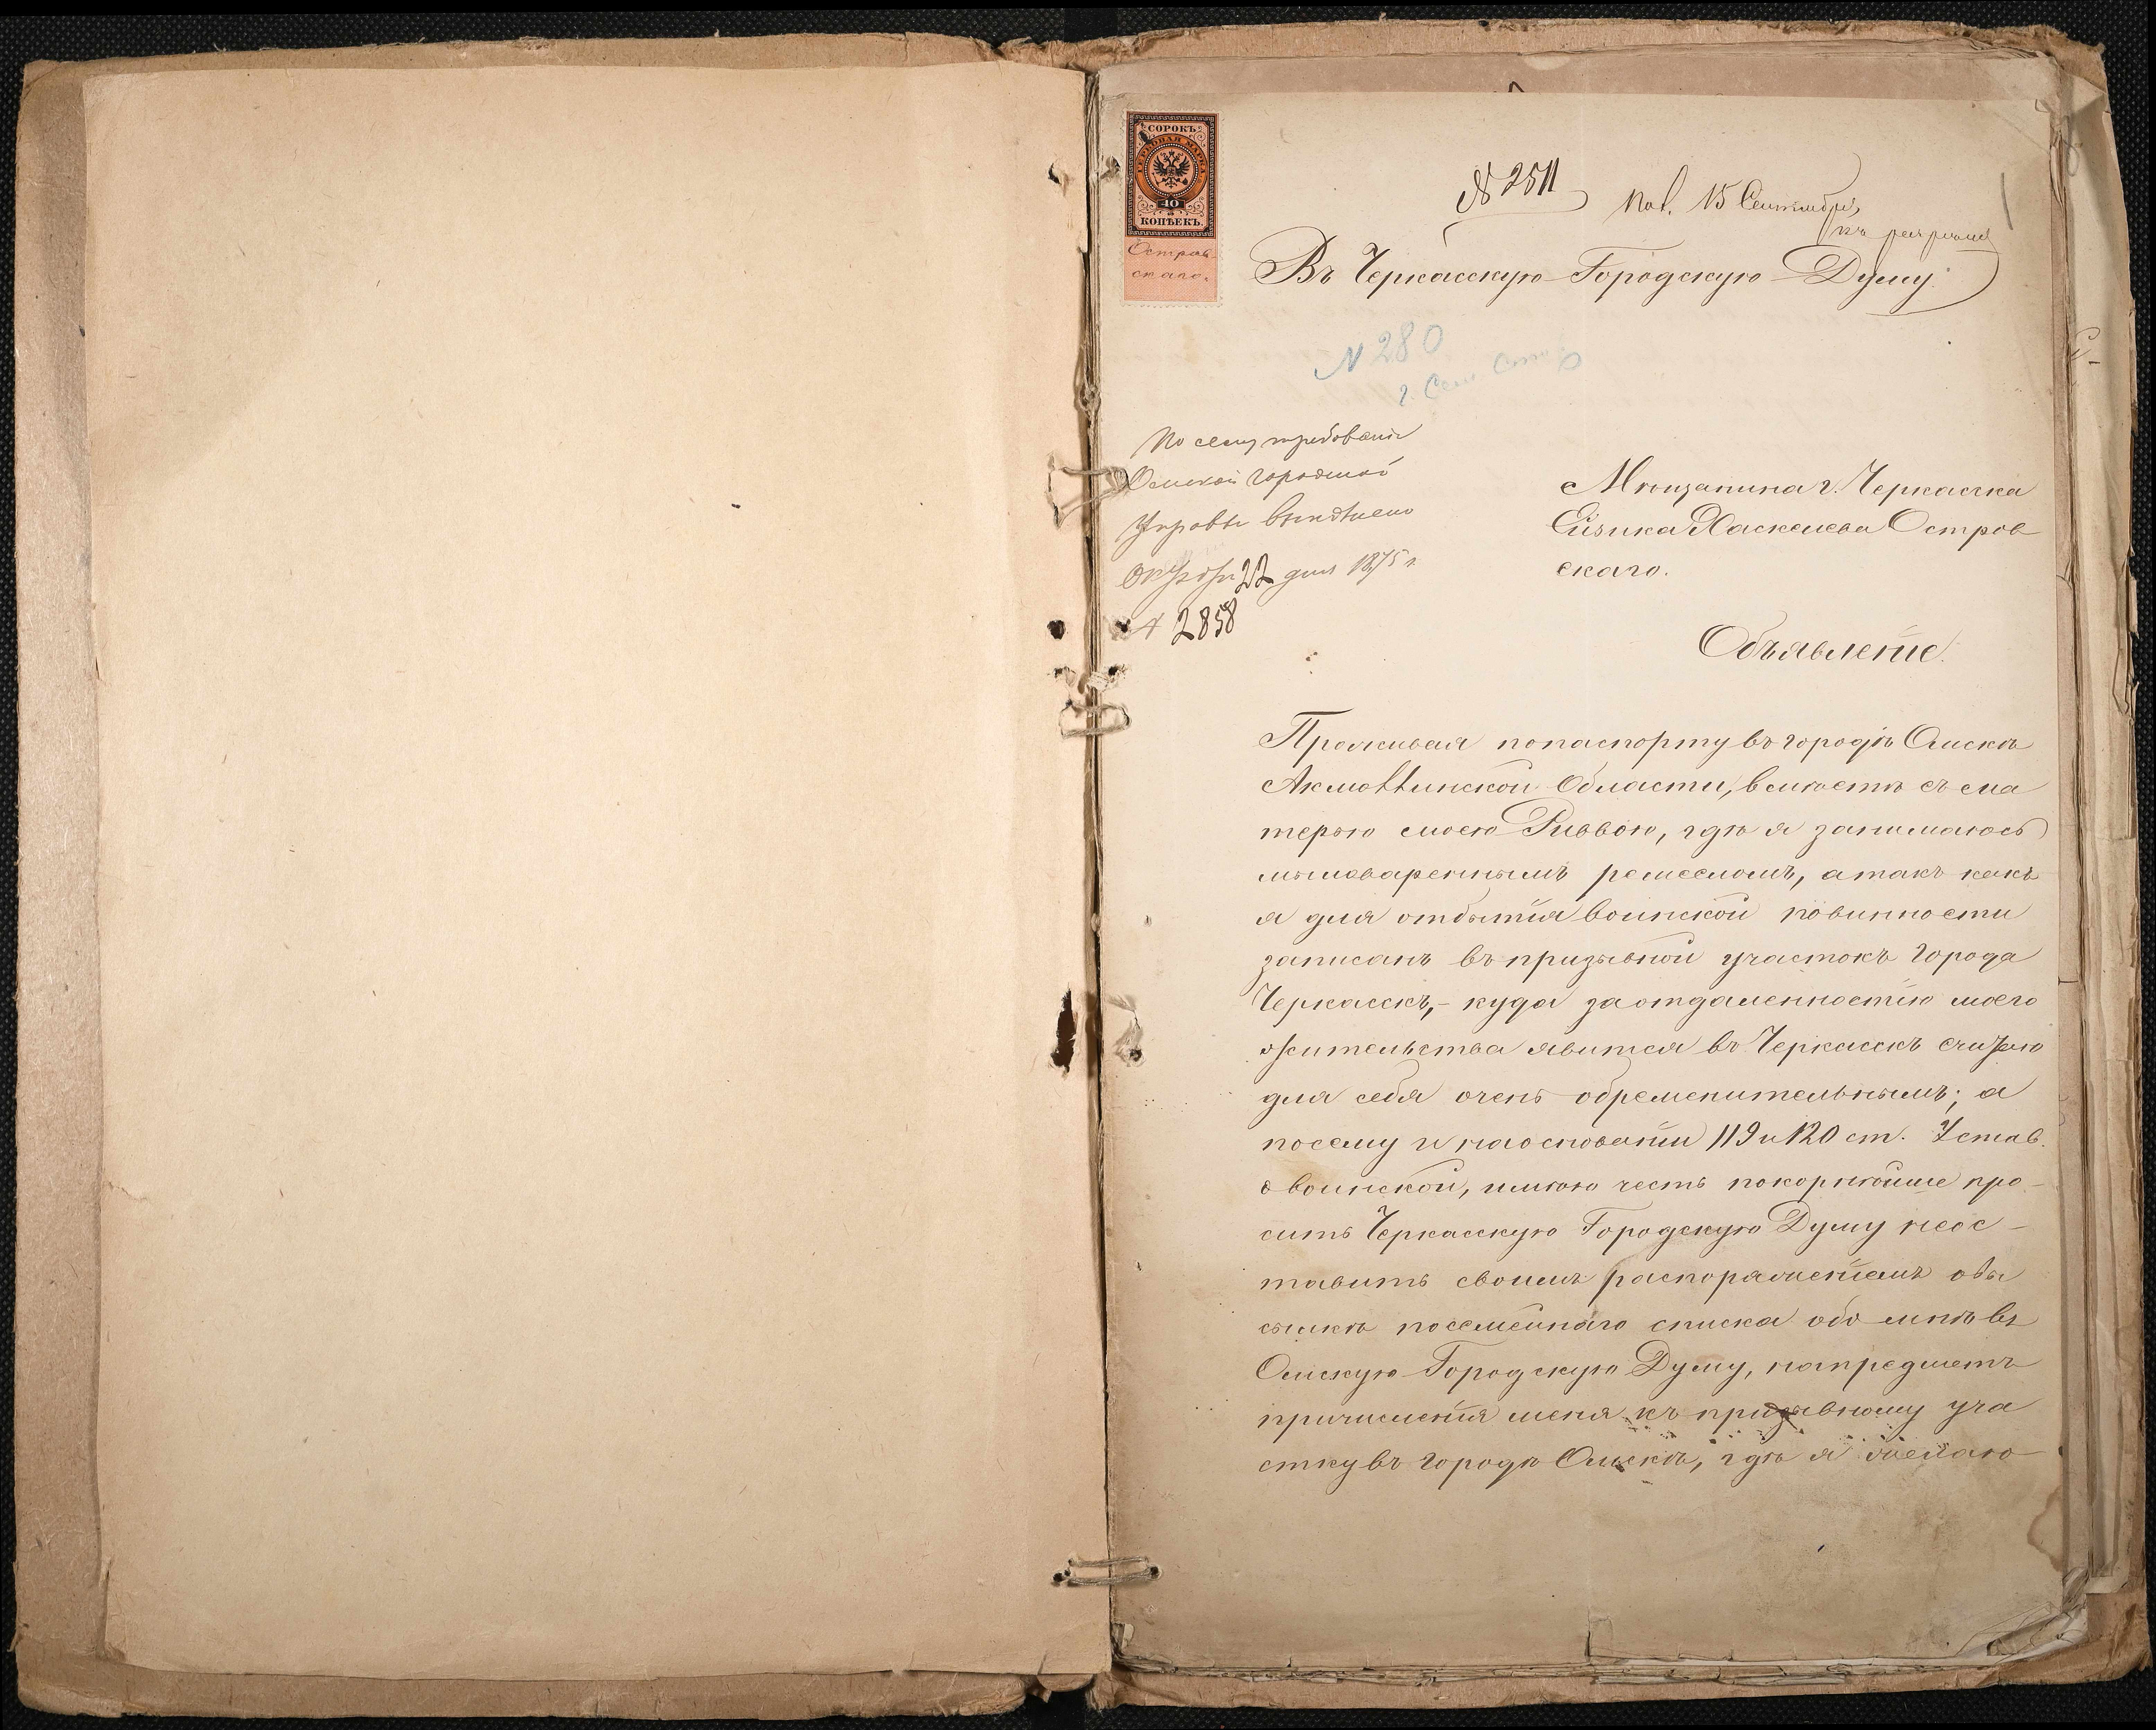 СОРОКЪ
ГЕРБОВАЯ МАРКА
40
КОПѢЕКЪ.
Остров
скаго.
№ 2511
Пол. 15 Сентября
Въ Черкасскую Городскую Думу.
N 280
По сему требованiю
Омской городской
Управы выполнено
Октября 22 дня 1875 г.
№ 2858
Мѣщанина г. Черкасска
Ейзика Хаскелева Остров
скаго.
Объявленiе.
Проживая попаспорту въ городѣ Омскѣ
Акмоллинской Области, вмѣстѣ съ ма
терью моею Риввою, гдѣ я занимаюсь
мыловареннымъ ремесломъ, атакъ какъ
я для отбытiя воинской повинности
записанъ въ призывной участокъ города
Черкасскъ,- куда заотдаленностiю моего
жительства явится въ Черкасскъ считаю
для себя очень обременительнымъ; а
посему и наоснованiи 119 и 120 ст. Устав.
о воинской, имѣю честь покорнѣйше про-
сить Черкасскую Городскую Думу неос-
тавить своимъ распоряженiемъ овы
сылкѣ посемейнаго списка обо мнѣ въ
Омскую Городскую Думу, напредметъ
причисленiя меня къ призывному уча
стку въ городѣ Омскѣ, гдѣ я желаю